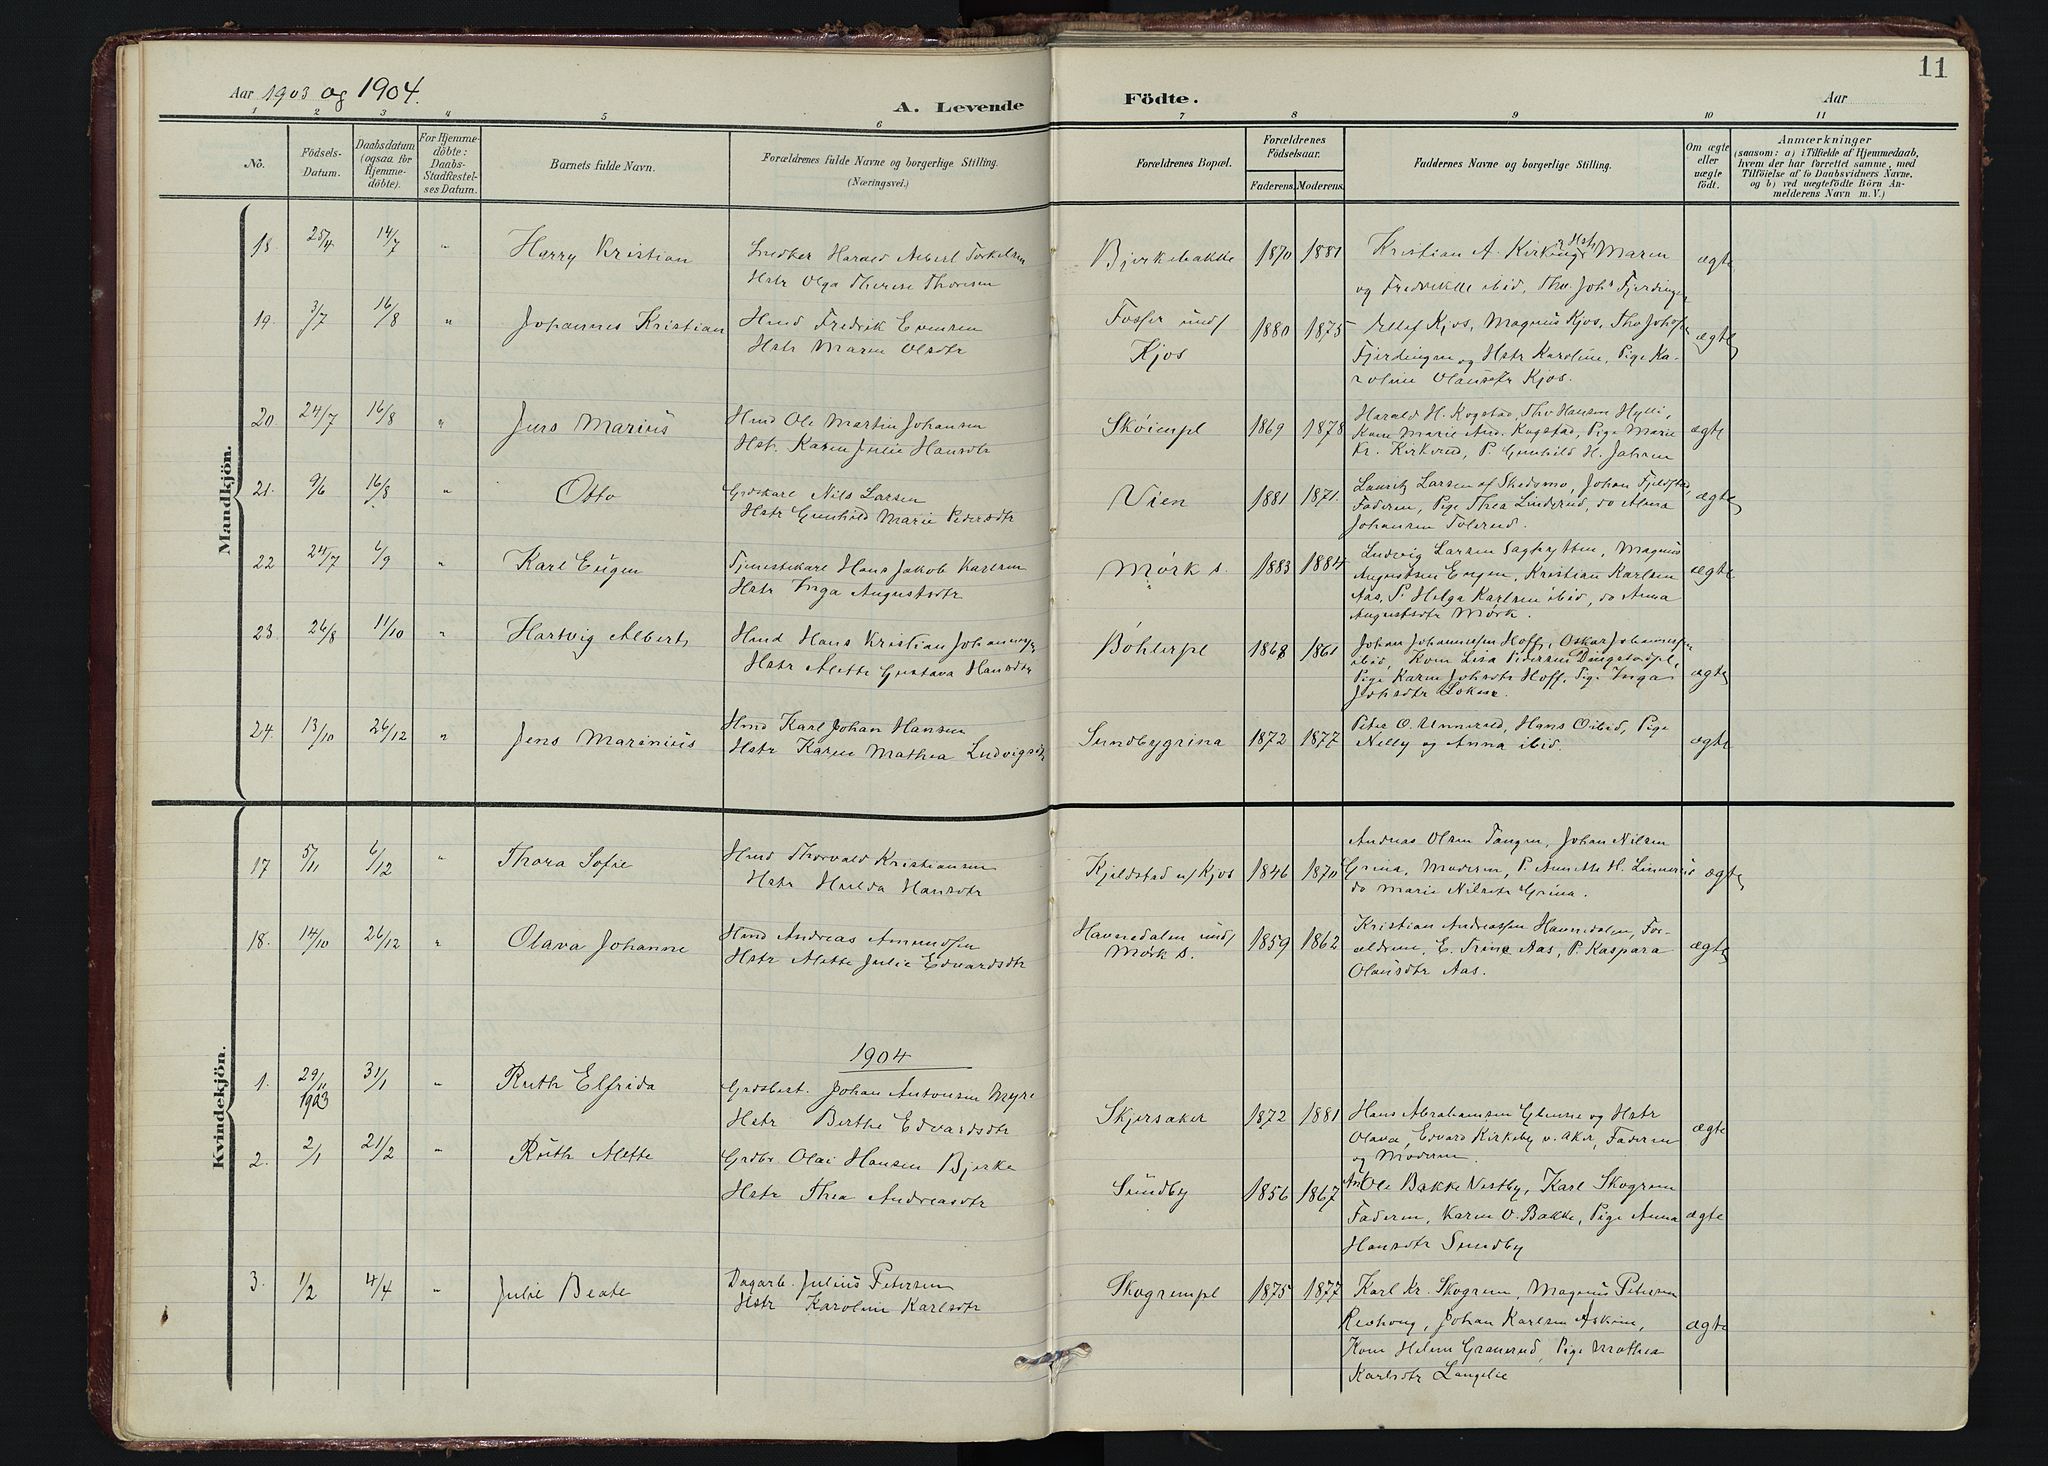 11
Aar 1903 og 1904.
A. Levende Födte.
Aar
1 2 3 4 5 6 7 8 9 10 11
No.
Födsels-
Datum.
Daabsdatum
(ogsaa for
Hjemme-
döbte).
For Hjemme-
döbte:
Daabs-
Stadfæstel-
ses Datum.
Barnets fulde Navn.
Forældrenes fulde Navne og borgerlige Stilling.
(Næringsvei.)
Forældrenes Bopæl.
Forældrenes
Födselsaar.
Faderens. Moderens.
Faddernes Navne og borgerlige Stilling.
Om ægte
eller
uægte
födt.
Anmærkninger
(saasom: a) i Tilfælde af Hjemmedaab,
hvem der har forrettet samme, med
Tilföielse af to Daabsvidners Navne.
og b) ved uægtefödte Börn An-
melderens Navn m. V.)
Mandkjön.
18. 25/4 14/7 " Harry Kristian Snedker Harald Albert Torkelsen Bjerkebakke 1870 1881 Kristian A. Kirkeng Hstr Maren ægte
Hstr Olga Therese Thoresen og Fredrikke ibid, Tho. Johs Fjerdingen
19. 3/7 16/8 " Johannes Kristian Hmd Fredrik Evensen Fosser und/ 1880 1875 Kjos, Magnus Kjos, Tho Johs ægte
Hstr Maren Olsdtr Kjos Fjerdingen og Hstr Karoline, Pige Ka-
roline Olausdtr Kjos.
20 24/7 16/8 " Jens Marius Hmd Ole Martin Johansen Skøienpl 1869 1878 Harald H. Kogstad, Tho Hansen Hylli, ægte
Hst. Karen Julie Hansdtr Kone Marie And. Kogstad, Pige Marie
Kr. Kirkerud, P. Gunhild H. Jahren
21. 9/6 16/8 " Otto Grdskarl Nils Larsen Vien 1881 1871. Lauritz Larsen af Skedsmo, Johan Fjeldstad, ægte
Hstr Gunhild Marie Pedersdtr Faderen, Pige Thea Linderud, do Alma
Johansen Toverud.
22 24/7 6/9 " Karl Eugen Tjenestekarl Hans Jakob Karlsen Mørk s. 1883 1884 Ludvig Larsen Saghytten, Magnus ægte
Hstr Inga Augustsdtr Augustsen Engen, Kristian Karlsen
Aas, P. Helga Karlsen ibid, do Anna
Augustsdtr Mørk.
23. 26/8 11/10 " Hartvig Albert Hmd Hans Kristian Johannessen Bøhlerpl 1868 1861 Johan Johannessen Hoff, Oskar Johannessen
Hstr Alette Gustava Hansdtr ibid, Kone Lisa Pedersen Dingstadpl,
Pige Karen Johsdtr Hoff, Pige Inga ægte
Johsdtr Løken.
24. 13/10 26/12 " Jens Marinius Hmd Karl Johan Hansen Sundbygrina 1872 1877 Peter O. Unnerud, Hans O ibid, Pige ægte
Hstr Karen Mathea Ludvigsdtr Nelly og Anna ibid.
Kvindekjön.
17 5/11 6/12 " Thora Sofie Hmd Thorvald Kristiansen Kjeldstad u/ Kjos 1846 1870 Andreas Olsen Tangen, Johan Nilsen ægte
Hstr Hulda Hansdtr Grina, Moderen, P. Annette H. Linnerud
do Marie Nilsdtr Grina.
18. 14/10 26/12 " Olava Johanne Hmd Andreas Amundsen Havnedalen und/ 1859 1862 Kristian Andreassen Havnedalen, For- ægte
Hstr Alette Julie Edvardsdtr Mørk s. ældrene, E. Trine Aas, P. Kaspara
Olausdtr Aas.
1904
1. 29/11 31/1 " Ruth Elfrida Grdsbest. Johan Antonsen Myre Skjersaker 1872 1881 Hans Abrahamsen Glenne og Hstr ægte
1903 Hstr Berthe Edvardsdtr Olava, Edvard Kirkeby v. Aker, Faderen
og Moderen.
2. 2/1 21/2 " Ruth Alette Grdbr. Olai Hansen Bjerke Sundby 1856 1867 Ole Bakke Vestby, Karl Skogren ægte
Hstr Thea Andreasdtr Faderen, Karen O. Bakke, Pige Anna
Hansdtr Sundby
3. 1/2 4/4 " Julie Beate Dagarb. Julius Petersen Skogrenpl 1875 1877 Karl Kr. Skogren, Magnus Petersen ægte
Hstr Karoline Karlsdtr Reshoug, Johan Karlsen Askim,
Kone Helene Granerud, Pige Mathea
Karlsdtr Langelie